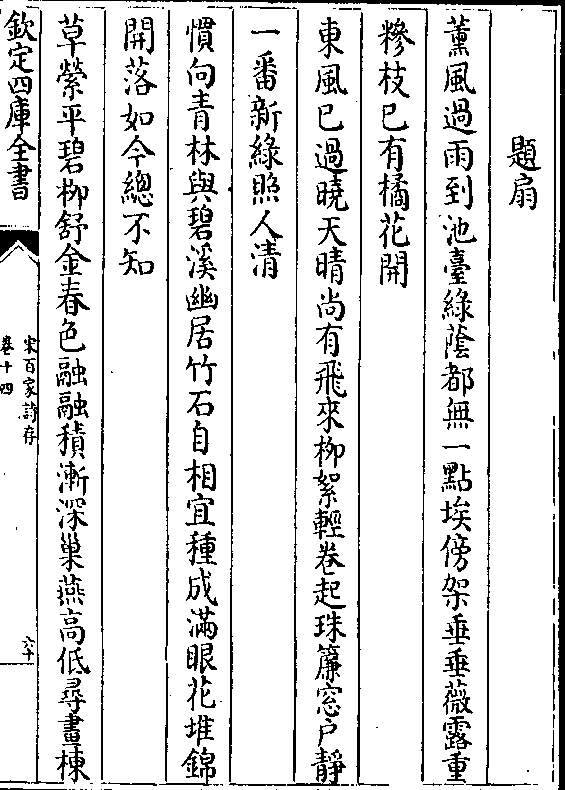 題扇
薰風過雨到池臺綠蔭都無一點埃傍架垂垂薇露重
糝枝已有橘花開
東風已過曉天晴尚有飛來柳絮輕卷起珠簾窓户靜
一番新綠照人清
慣向青林與碧溪幽居竹石自相宜種成滿眼花堆錦
開落如今總不知
草縈平碧柳舒金春色融融積漸深巢燕高低尋畫棟
欽定四庫全書
宋百家詩存
卷十四
六十